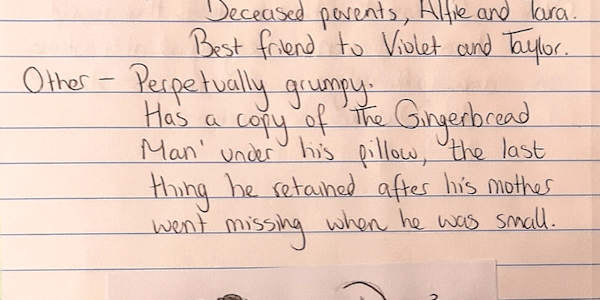 Deceased parents, Alfie and Tara.
Best friend to Violet and Taylor.
Other - Perpetually grumpy.
Has a copy of 'The Gingerbread
Man' under his pillow, the last
thing he retained after his mother
went missing when he was small.